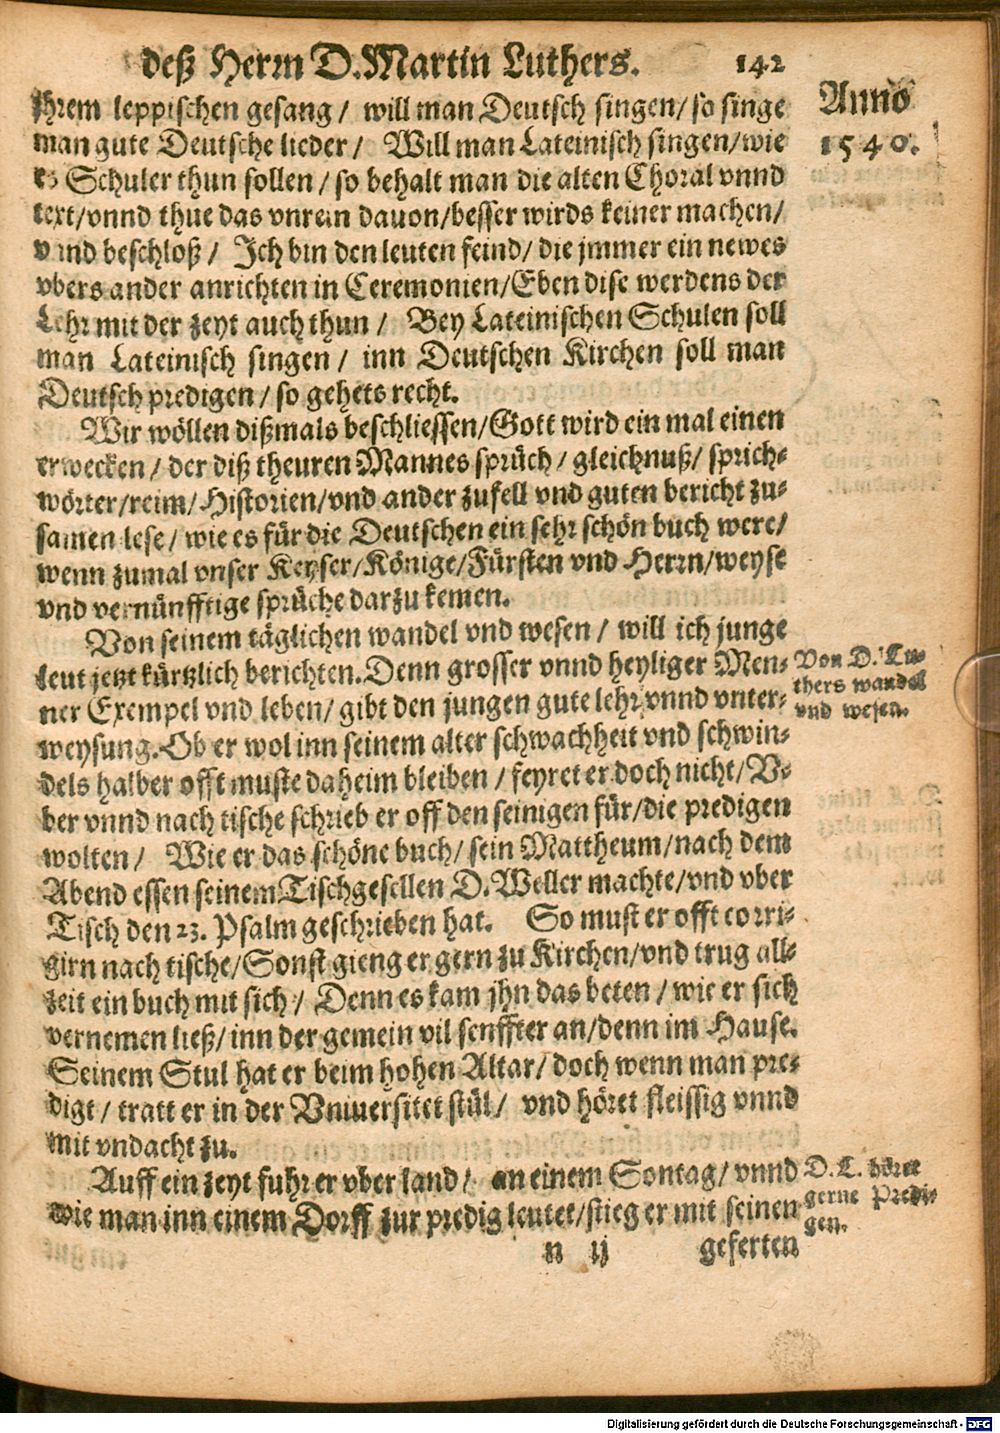 deß Herrn D. Martin Luthers. 142
Anno
1540.
jhrem leppischen gesang / will man Deutsch singen/ so singe
man gute Deutsche lieder / Will man Lateinisch singen/wie
es Schuler thun sollen / so behalt man die alten Choral vnnd
text/vnnd thue das vnrein dauon/besser wirds keiner machen/
vnnd beschloß / Ich bin den leuten feind/ die jmmer ein newes
vbers ander anrichten in Ceremonien/Eben dise werdens der
Lehr mit der zeyt auch thun / Bey Lateinischen Schulen soll
man Lateinisch singen / inn Deutschen Kirchen soll man
Deutsch predigen / so gehets recht.
Wir wöllen dißmals beschliessen/Gott wird ein mal einen
erwecken / der diß theuren Mannes sprüch / gleichnuß/ sprich-
wörter/reim/ Historien/vnd ander zufell vnd guten bericht zu-
samen lese / wie es für die Deutschen ein sehr schön buch were/
wenn zumal vnser Keyser/Könige/Fürsten vnd Herrn/weyse
vnd vernünfftige sprüche darzu kemen.
Von seinem täglichen wandel vnd wesen / will ich junge
leut jetzt kürtzlich berichten. Denn grosser vnnd heyliger Men-
ner Exempel vnd leben/ gibt den jungen gute lehr vnnd vnter-
weysung. Ob er wol inn seinem alter schwachheit vnd schwin-
dels halber offt muste daheim bleiben / feyret er doch nicht/ V-
ber vnnd nach tische schrieb er off den seinigen für/die predigen
wolten / Wie er das schöne buch/ sein Mattheum/nach dem
Abend essen seinem Tischgesellen D. Weller machte/vnd vber
Tisch den 23. Psalm geschrieben hat. So must er offt corri-
girn nach tische/Sonst gieng er gern zu Kirchen/vnd trug all-
zeit ein buch mit sich / Denn es kam jhn das beten / wie er sich
vernemen ließ/ inn der gemein vil senffter an/denn im Hause.
Seinem Stul hat er beim hohen Altar/ doch wenn man pre-
digt / tratt er in der Vniuersitet stül / vnd höret fleissig vnnd
mit andacht zu.
Auff ein zeyt fuhr er vber land / an einem Sontag/ vnnd
wie man inn einem Dorff zur predig leutet/stieg er mit seinen
n ij geferten
Von D. Lu-
thers wandel
vnd wesen.
D. L. höret
gerne Predi-
gen.
Digitalisierung gefördert durch die Deutsche Forschungsgemeinschaft - DFG